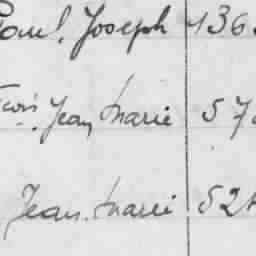 Paul, Joseph 136
Jean Marie 57
Jean-Marie 52